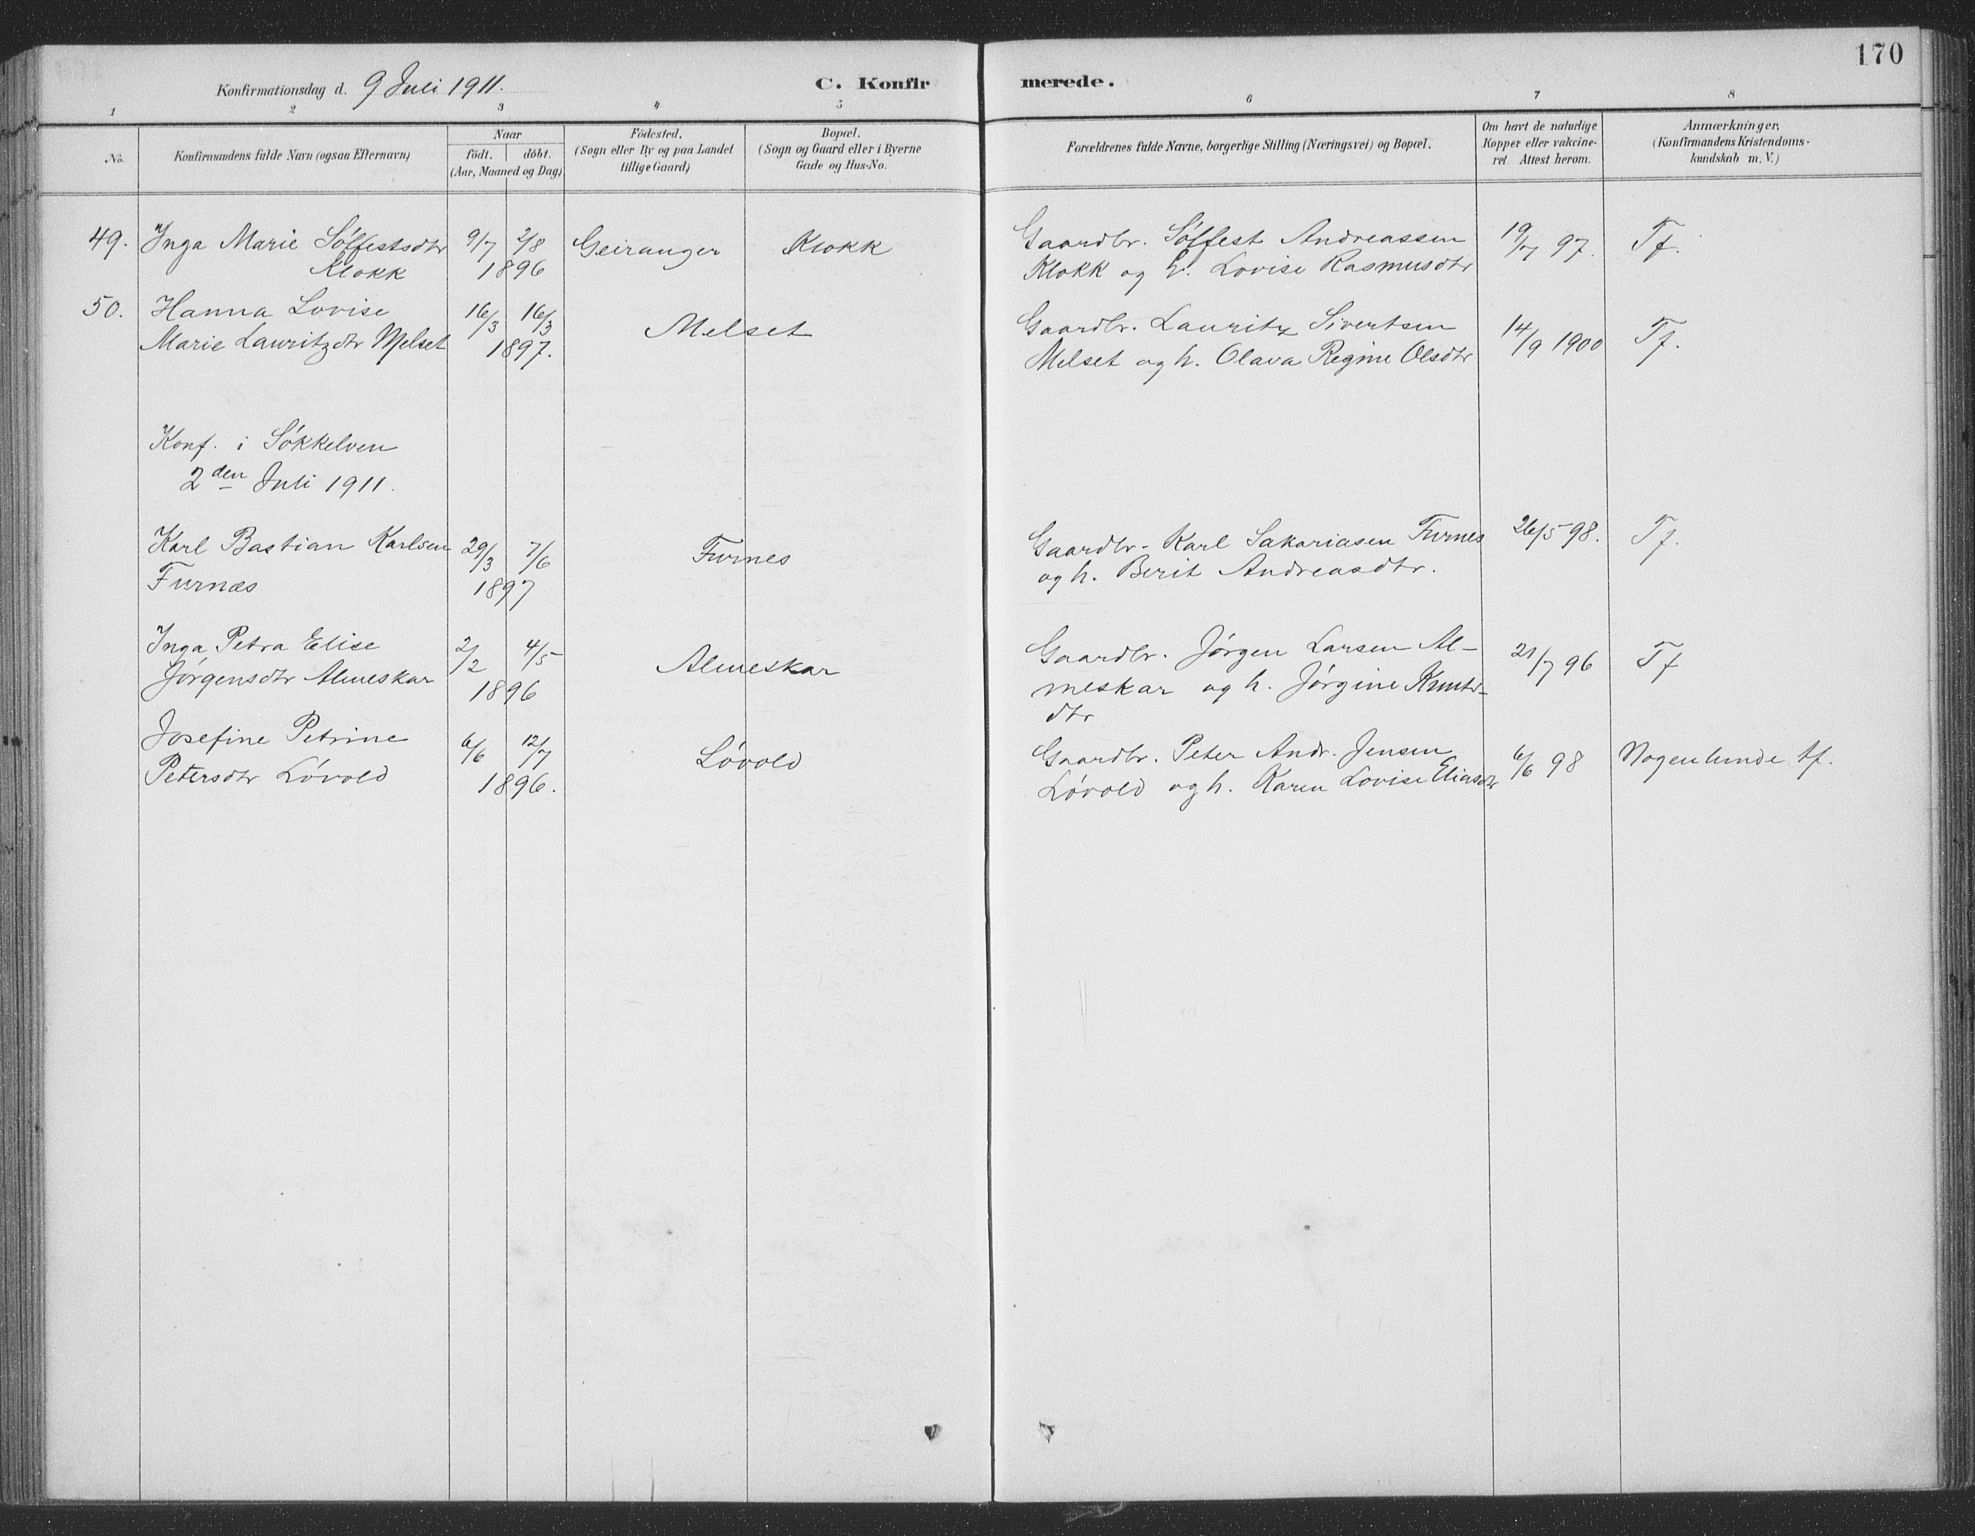 170
Konfirmationsdag d. 9 Juli 1911.
C. Konfirmerede.
1 2 3 4 5 6 7 8
No.
Konfirmandens fulde Navn (ogsaa Efternavn)
Naar
födt. döbt.
(Aar, Maaned og Dag)
Födested.
(Sogn eller By og paa Landet
tillige Gaard)
Bopæl.
(Sogn og Gaard eller i Byerne
Gade og Hus-No.
Forældrenes fulde Navne, borgerlige Stilling (Næringsvei) og Bopæl.
Om havt de naturlige
Kopper eller vakcine-
ret. Attest herom.
Anmærkninger.
(Konfirmandens Kristendoms-
kundskab m. V.)
49. Inga Marie Sølfestsdtr 9/7 2/8 Geiranger Klokk Gaardbr. Sølfest Andreassen 19/7 97. Tf.
Klokk 1896 Klokk og h. Lovise Rasmusdtr
50. Hanna Lovise 16/3 16/3 Melset Gaardbr. Lauritz Sivertsen 14/9 1900 Tf.
Marie Lauritzdtr Melset 1897. Melset og h. Olava Regine Olsdtr
Konf. i Søkkelven
2den Juli 1911.
Karl Bastian Karlsen 29/3 7/6 Furnes Gaardbr. Karl Sakariasen Furnes 26/5 98. Tf.
Furnæs 1897 og h. Berit Andreasdtr.
Inga Petra Elise 2/2 4/5 Almeskar Gaardbr. Jørgen Larsen Al- 21/7 96 Tf
Jørgensdtr Almeskar 1896 meskar og h. Jørgine Knuts-
dtr
Josefine Petrine 6/6 12/7 Løvold Gaardbr. Peter Andr. Jensen 6/6 98 Nogenlunde tf.
Petersdtr Løvold 1896. Løvold og h. Karen Lovise Eliasdtr